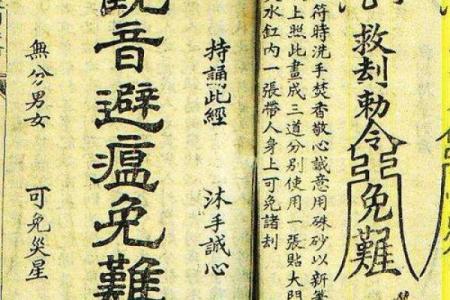 救刦勅令免難
符時洗手焚香敬心誠意用硃砂以新筆
上照此畫成三道分別使用一張貼大門
水缸內一張帶人身上可免諸刦
持誦此經 沐手誠心
觀音避瘟免難
無分男女 可免災星